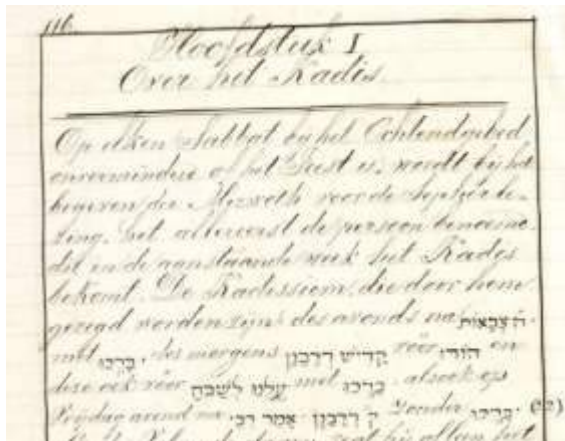 116.
Hoofdstuk I
Over het Kadis.
Op elken Sabbat bij het Ochtendgebed
of het Feest is, wordt bij het
begeven der Mizwoth voor de
zing, het allereerst de persoon benoemd
die in de aanstaande week het Kades
bekomt. De Kadissiem, die door hem
gezegd worden zijn: des avonds na
met ברכו, des morgens קדיש דרבנן vóór הודו en
deze ook vóór עלינו לשבח met ברכו, alsook op
Vrijdag avond na ק דרבנן אמר רבי zonder ברכו.